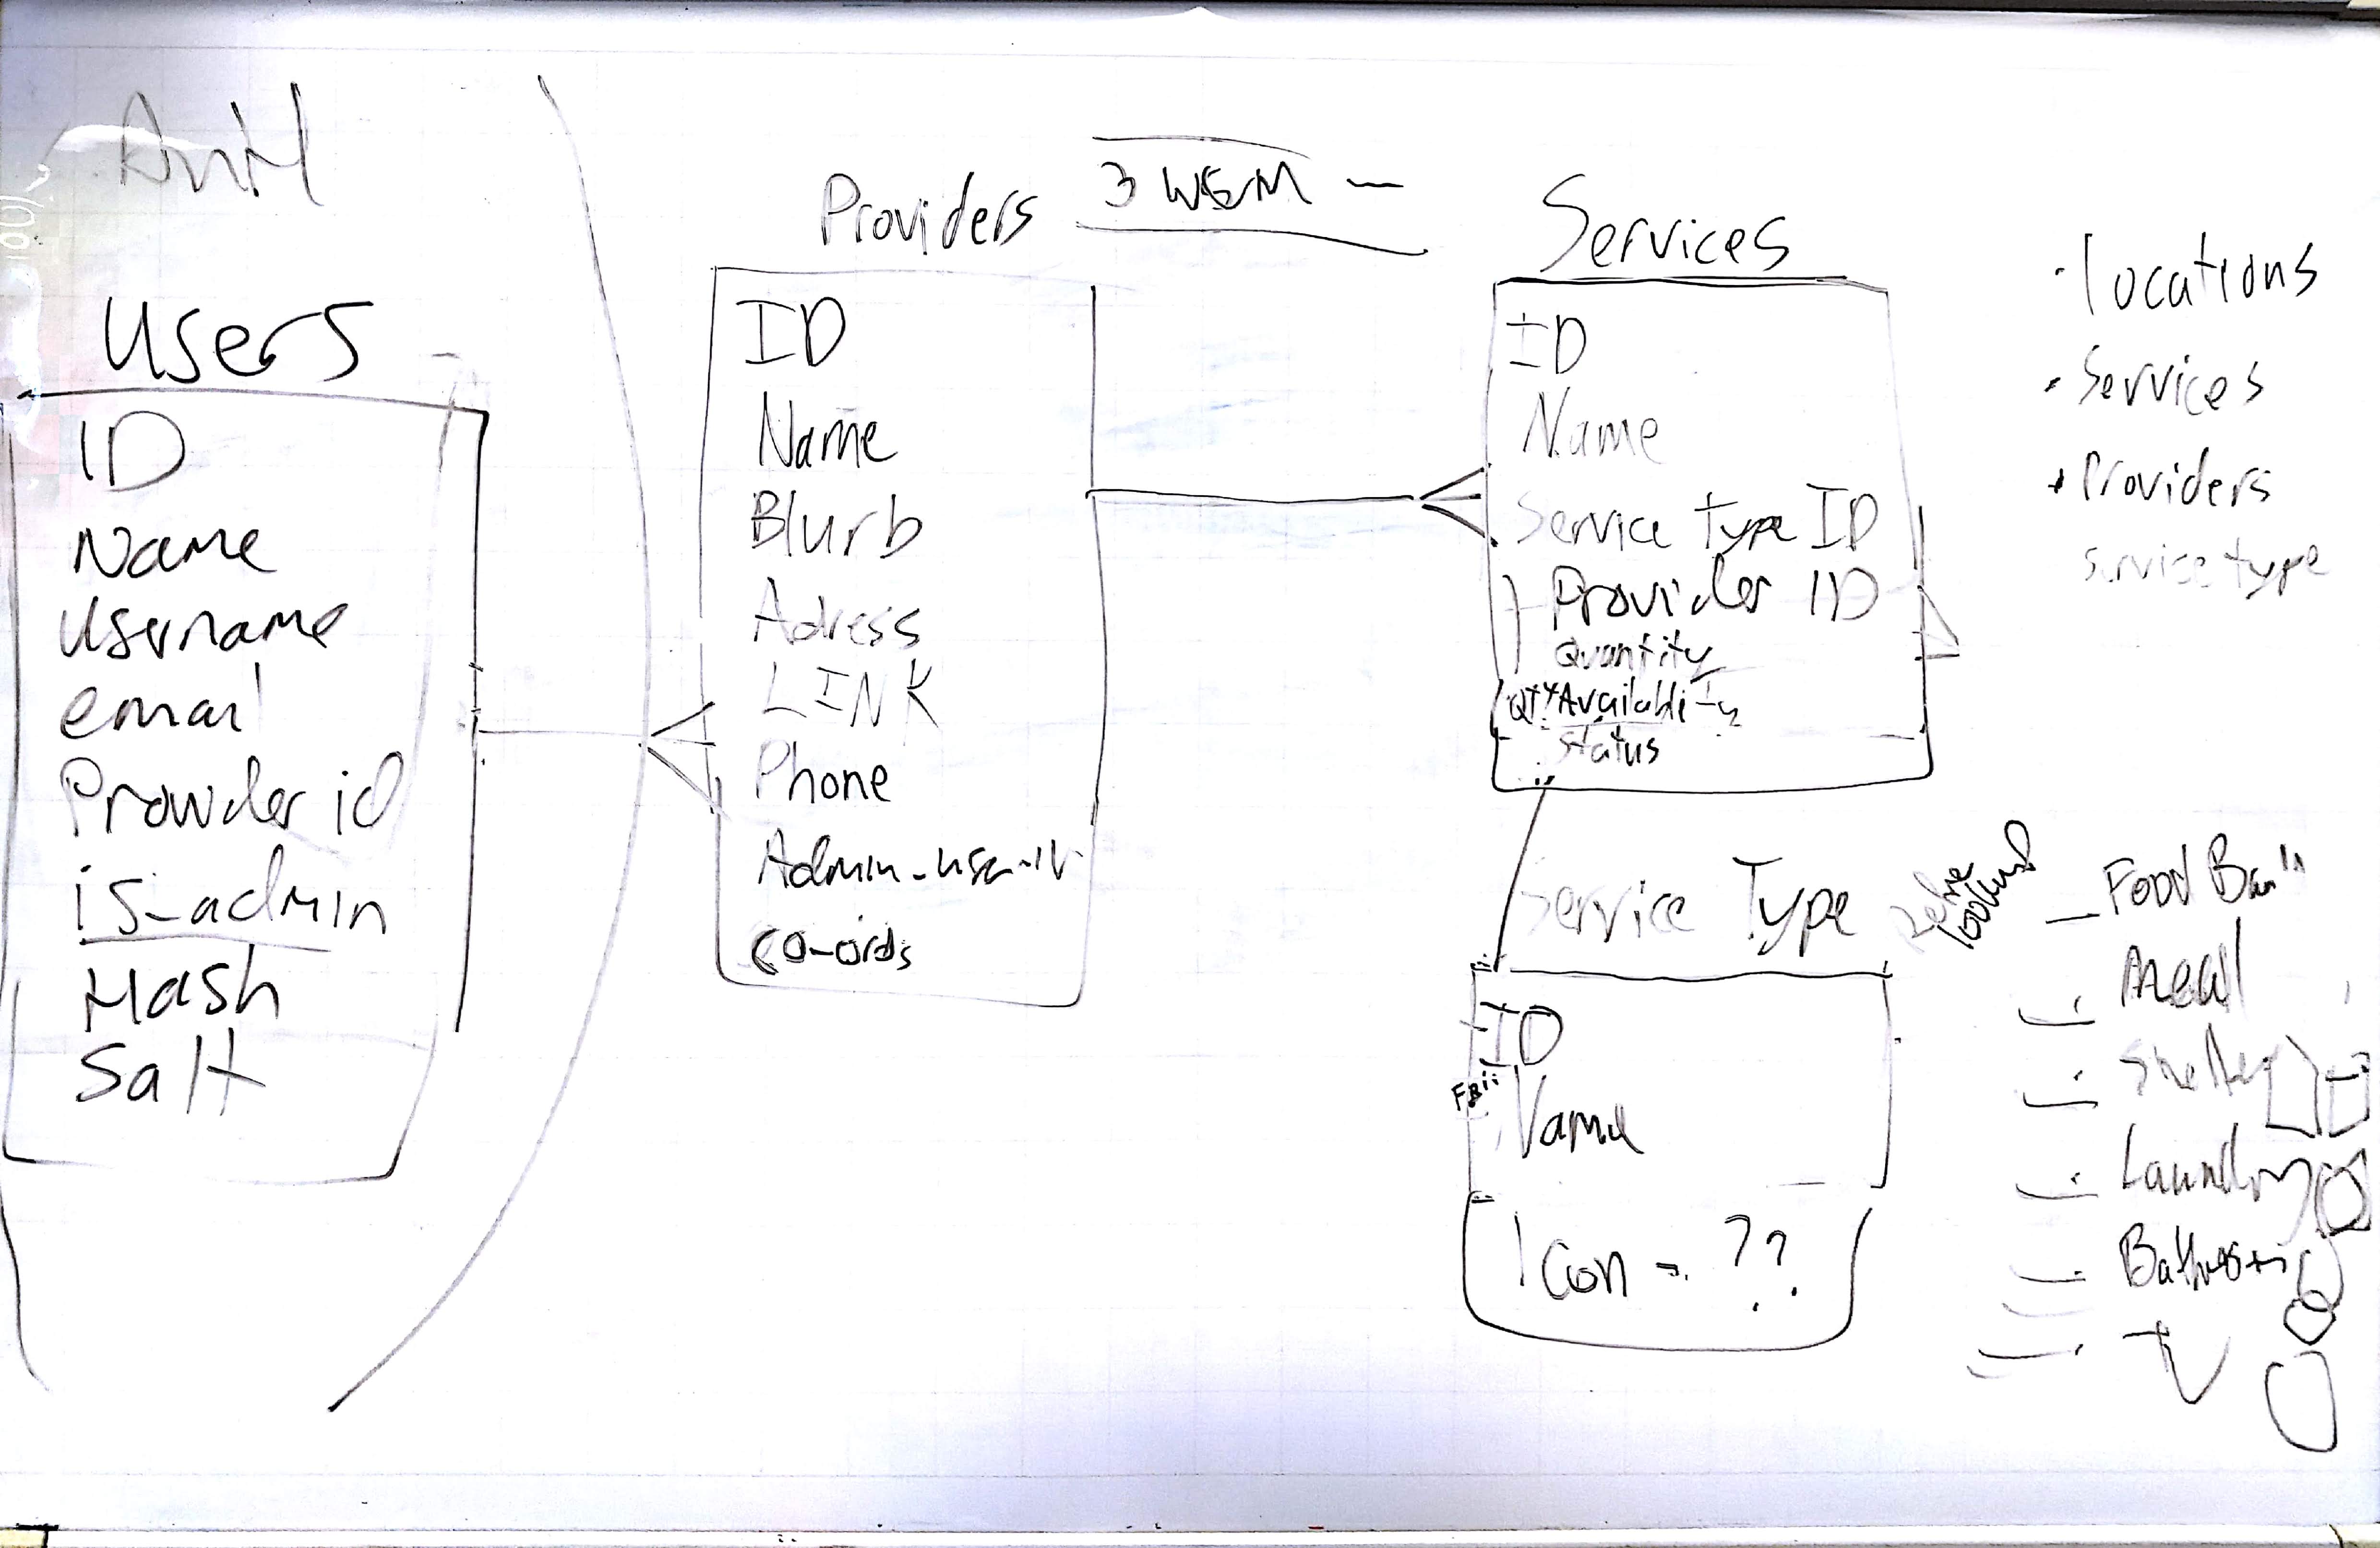 Users
ID
Name
Username
email
Provider id
is_admin
Hash
Salt
Providers
3 W&M —
ID
Name
Blurb
Adress
LINK
Phone
co-ords
Services
ID
Name
Service Type ID
Provider ID
Quantity
QTY Availability
Status
Service Type
ID
Name
Icon - ??
· locations
· Services
· Providers
service type
Meal
Shelter
Laundry